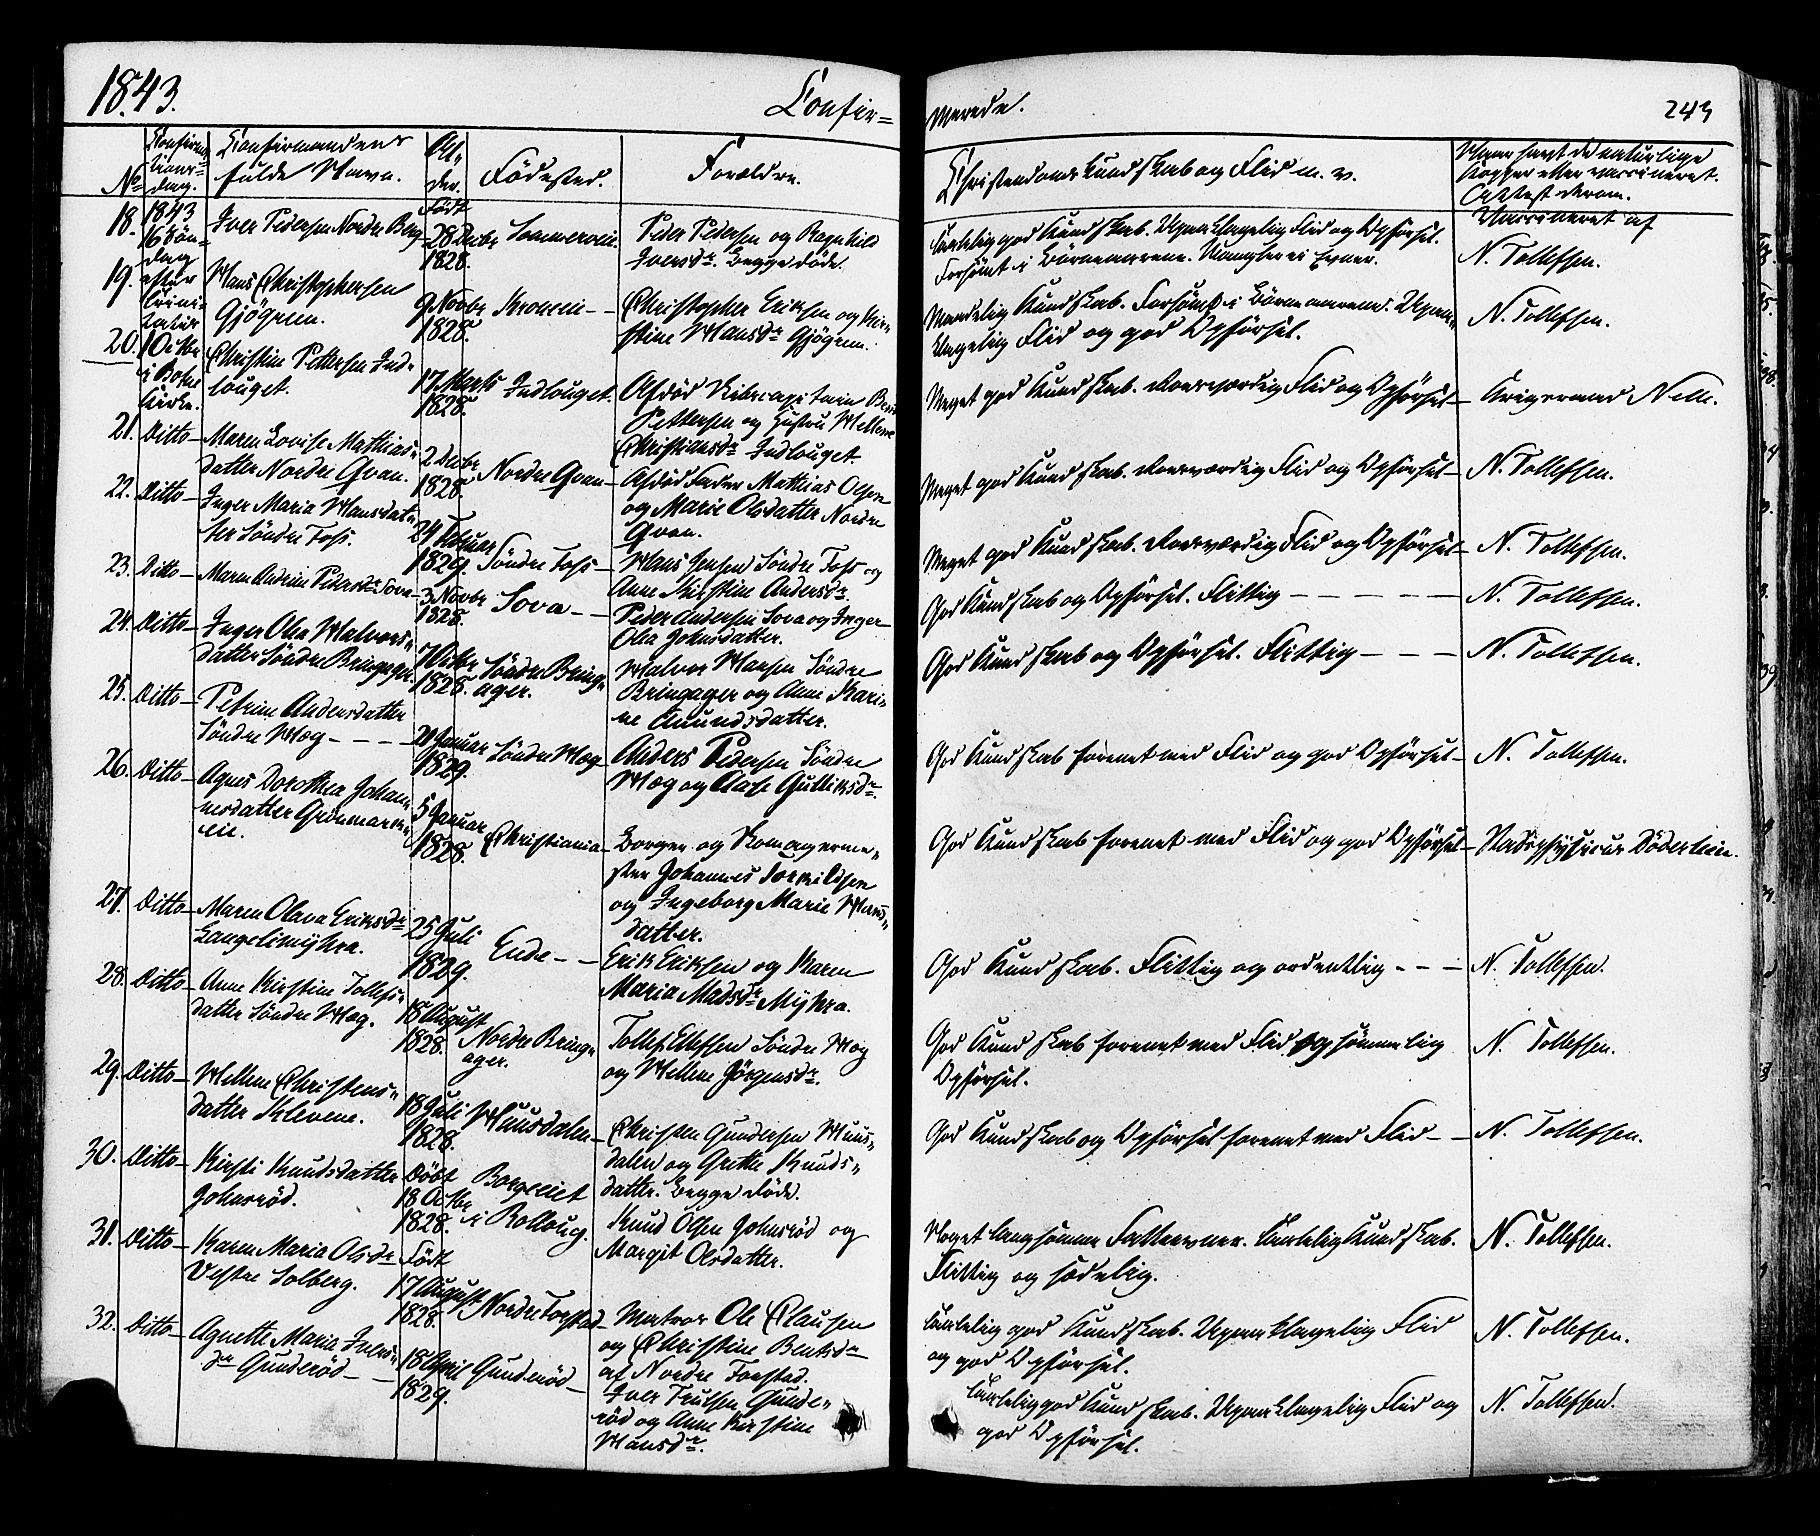 1843.
Confir=
merede.
243
No
Confirma=
tions=
dag.
Confirmandens
fulde Navn.
Al=
der.
Fødested.
Forældre.
Christendomskundskab og Flid m. v.
Naar havt de naturlige
Kopper eller vaccineret.
Attest derom.
18.
1843
16 Søn=
dag
efter
Trini=
tatis
1 Octbr
i Botne
Kirke.
Iver Pedersen Nordre Berg
Født
28 Decbr
1828.
Sommerveie.
Peder Pedersen og Ragnhild
Iversdr. Begge døde.
Taalelig god Kundskab. Upaaklagelig Flid og Opførsel.
Forsømt i Børneaarene. Mangler ei Evner.
Vaccineret af
N. Tollefsen.
19.
Hans Christophersen
Gjøgrein.
9 Novbr
1828.
Christopher Eriksen og Kir=
stine Hansdr Gjøgrein.
Maadelig Kundskab. Forsømt i Børneaarene. Upaa=
klagelig Flid og god Opførsel.
N. Tollefsen.
20.
Christine Pettersen Ind=
louget.
17 Marts
1828.
Indlouget.
Afdød Skibscapitain
Pettersen og Hustru Hellene
Christiansdr Indlouget.
Meget god Kundskab. Roesværdig Flid og Opførsel
21.
Ditto
Maren Lovise Mathias=
datter Nordre Gran.
2 Decbr
1828.
Nordre Gran
Afdød Fader Mathias Olsen
og Marie Olsdatter Nordre
Gran.
Meget god Kundskab. Roesværdig Flid og Opførsel
N. Tollefsen.
22.
Ditto
Inger Maria Hansdat=
ter Søndre Foss.
24 Februar
1829.
Søndre Foss
Hans Jensen Søndre Foss og
Anne Kirstine Andersdr.
Meget god Kundskab. Roesværdig Flid og Opførsel
N. Tollefsen.
23.
Ditto
Maren Andrine Pedersdr Sova
3 Novbr
1828.
Sova
Peder Andersen Sova og Inger
Olea Johnsdatter.
God Kundskab og Opførsel. Flittig
N. Tollefsen.
24.
Ditto
Inger Olea Halvors=
datter Søndre Bringager.
7 Octbr
1828.
Søndre Bring=
ager.
Halvor Hansen Søndre
Bringager og Anne Kari=
ne Amundsdatter.
God Kundskab og Opførsel. Flittig
N. Tollefsen.
25.
Ditto
Petrine Andersdatter
Søndre Hæg
Januar
1829.
Søndre Hæg
Anders Pedersen Søndre
Hæg og Aase Gulliksdr.
God Kundskab forenet med Flid og god Opførsel
N. Tollefsen.
26.
Ditto
Agnes Dorothea Johan=
nesdatter Grønmarks=
eie.
5 Januar
1828.
Christiania
Borger og Skomagerme=
ster Johannes Torkildsen
og Ingeborg Marie Hans=
datter.
God Kundskab forenet med Flid og god Opførsel
Stadsphysicus Döderlein.
27.
Ditto
Maren Olava Eriksdr
Langelimyhra.
25 Juli
1829.
Ende
Erik Eriksen og Karen
Maria Madsdr Myhra.
God Kundskab. Flittig og ordentlig
N. Tollefsen.
28.
Ditto
Anne Kirstine Tollefs=
datter Søndre Hæg.
18 August
1828.
Nordre Bring=
ager.
Tollef Ellefsen Søndre Hæg
og Hellene Jørgensdr.
God Kundskab forenet med Flid og sømmelig
Opførsel.
N. Tollefsen.
29.
Ditto
Hellene Christens=
datter Klevene.
18 Juli
1828.
Huusdalen
Christen Gundersen Huus=
dalen og Grethe Knuds=
datter. Begge døde.
God Kundskab og Opførsel forenet med Flid
N. Tollefsen.
30.
Ditto
Kirsti Knudsdatter
Johnsrød.
Døbt
18 Octbr
1828.
i Rolloug.
Knud Olsen Johnsrød og
Margit Olsdatter.
Noget langsomme Fatteevner. Taalelig Kundskab.
Flittig og sædelig.
N. Tollefsen.
31.
Ditto
Karen Maria Olsdr
Vestre Solberg.
Født
17 August
1828.
Nordre Forstad
Matros Ole Clausen
og Christine Bentsdr
af Nordre Forstad.
Taalelig god Kundskab. Upaaklagelig Flid
og god Opførsel.
N. Tollefsen.
32.
Ditto
Agnette Maria Ivers=
dr Gunderød
18 April
1829.
Gunderød
Iver Trulsen Gunde=
rød og Anne Kirstine
Hansdr.
Taalelig god Kundskab. Upaaklagelig Flid og
god Opførsel.
N. Tollefsen.